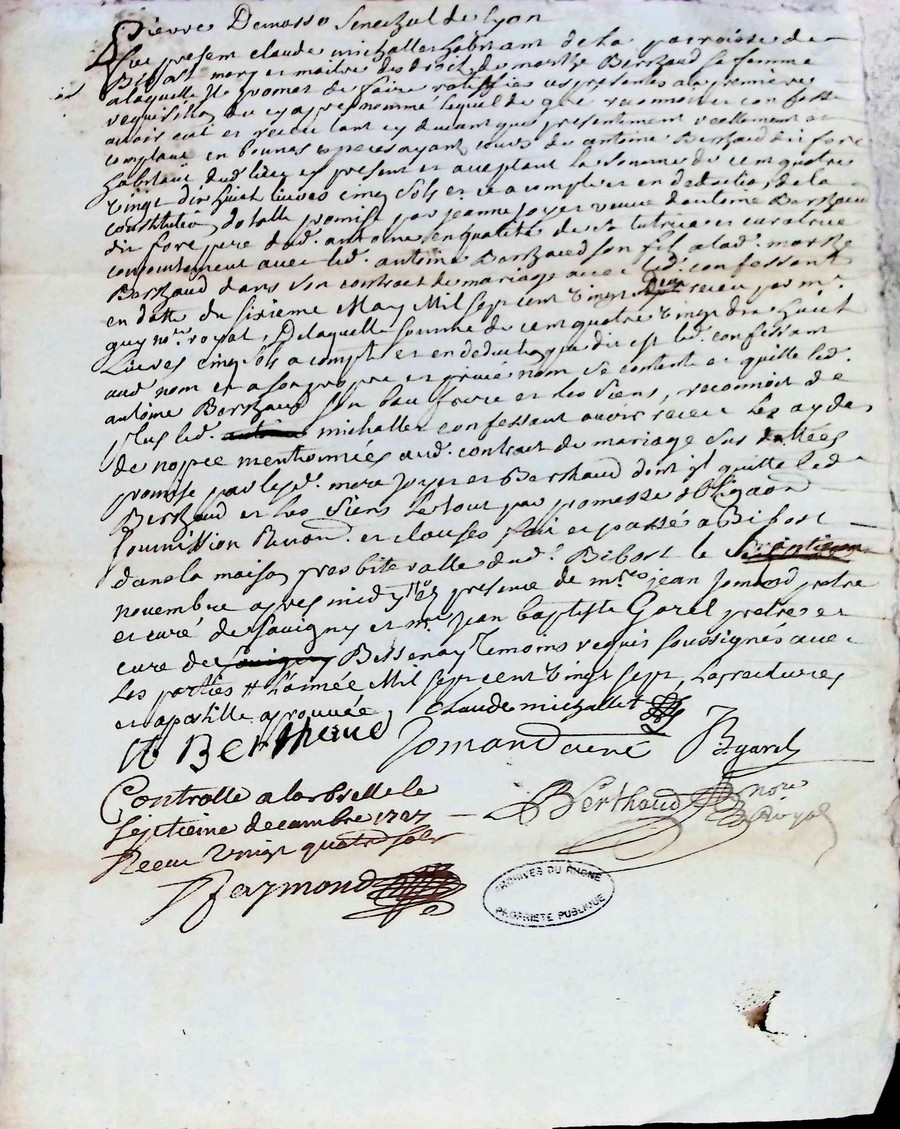 Pierre Demasso Senechal de Lyon
fut present claude michallet habitant de la parroisse de
Bibost mary et maitre des droits de marthe Berthaud sa femme
a laquelle Il promet de faire ratiffier ces presentes a la premiere
requisition du cy apres nommé lequel de gré reconnoit et confesse
avoir eut et receu tant cy devant que presentement reellement et
comptant en bonnes especes ayant cours de antoine Berthaud dit fore
habitant dud. lieu cy present et aceptant la somme de cent quatre
vingt dix huict livres cinq sols et ce a compte et en deduction de la
constitution dotalle promise par jeanne Joyet veuve d'antoine Berthaud
dit fore pere dud. antoine en qualité de sa tutrice et curatrice
conjointement avec led. antoine Berthaud son fil a lad. marthe
Berthaud dans son contract de mariage avec led. confessant
en datte du sixieme May Mil sept cent vingt receu par me.
guy nore. royal, De laquelle somme de cent quatre vingt dix huict
Livres cinq sols a compte et en deduction que dit est led. confessant
aud. nom et a son propre et privé nom se contente et quitte led.
antoine Berthaud son beau frere et les siens, reconnoit de
plus led. michallet confessant avoir receu les aydes
de nopce mentionnées aud. contract de mariage sus dattées
promise par lesd. mere Joyet et Berthaud dont il quitte led.
Berthaud et les siens le tout par promesse obligaon
soumission Renon. et clauses fait et passé a Bibost
dans la maison presbiteralle dud. Bibost le
novembre apres midy en presence de mre jean Jomand pretre
et curé de Savigny et mre Jean baptiste Garel pretre et
cure de Bessenay temoins requis soussignés avec
Les parties # L'année Mil sept cent vingt sept, Les ratures
et apostille aprouvée claude michallet
A BERthaud Jomand curé JBgarel
Controlle a larbrelle le
septieme decembre 1727 Berthaud nore
Receu vingt quatre sols Royal
Raymond
ARCHIVES DU RHONE
PROPRIETE PUBLIQUE